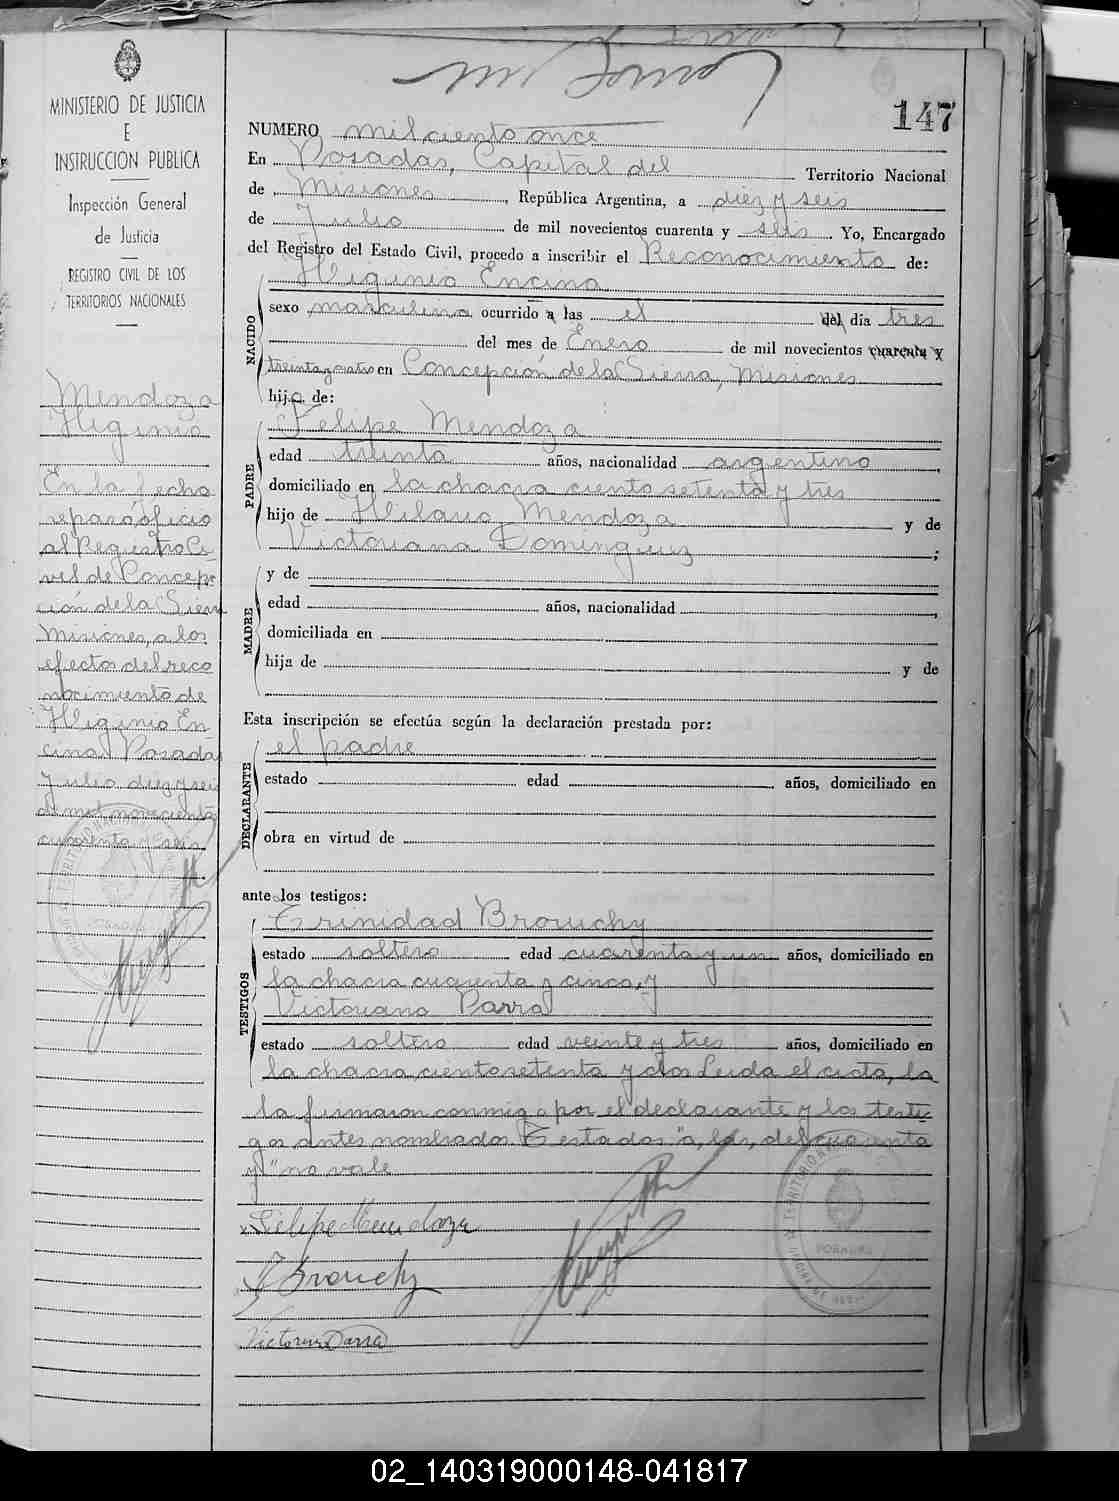 147
MINISTERIO DE JUSTICIA
E
INSTRUCCION PUBLICA
Inspección General
de Justicia
REGISTRO CIVIL DE LOS
TERRITORIOS NACIONALES
Mendoza
Higinio
En la fecha
se paró oficio
al Registro Ci
vil de Concep
ción de la Sierra
Misiones, a los
efectos del reco
nocimiento de
Higinio En
cina. Posadas
Julio diez y seis
de mil novecientos
cuarenta y seis
NUMERO mil ciento once
En Posadas, Capital del Territorio Nacional
de Misiones, República Argentina, a diez y seis
de Julio de mil novecientos cuarenta y seis. Yo, Encargado
del Registro del Estado Civil, procedo a inscribir el Reconocimiento de:
NACIDO
Higinio Encina
sexo masculino ocurrido a las el del día tres
del mes de Enero de mil novecientos cuarenta y
treinta y cuatro en Concepción de la Sierra, Misiones
hijo de:
PADRE
Felipe Mendoza
edad treinta años, nacionalidad argentino,
domiciliado en la chacra ciento setenta y tres
hijo de Hilario Mendoza y de
Victoriana Dominguez;
MADRE
y de
edad años, nacionalidad,
domiciliada en
hija de y de
Esta inscripción se efectúa según la declaración prestada por:
DECLARANTE
el padre
estado edad años, domiciliado en
obra en virtud de
ante los testigos:
TESTIGOS
Trinidad Brouchy
estado soltero edad cuarenta y un años, domiciliado en
la chacra cincuenta y cinco, y
Victoriano Parra
estado soltero edad veinte y tres años, domiciliado en
la chacra ciento setenta y dos. Leida el acta, la
la firmaron conmigo por el declarante y los testi-
gos antes nombrados. Testados "a, las, del cuarenta
y" no vale
Felipe Mendoza
T Brouchy
Victoriano Parra
POSADAS
02_140319000148-041817